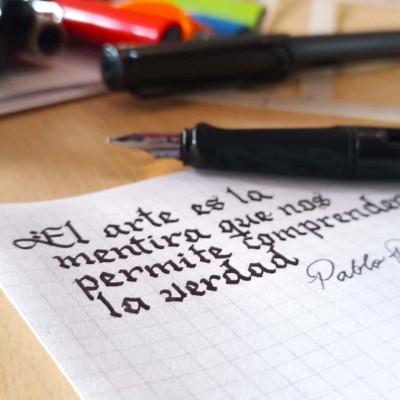 El arte es la
mentira que nos
permite comprender
la verdad
Pablo